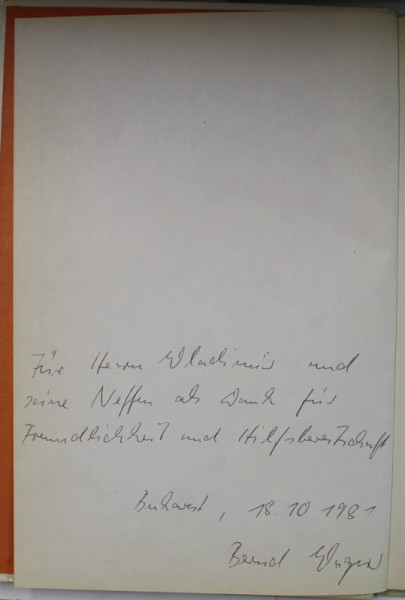 Für Herrn Wladimir und
seine Neffen als Dank für
Freundlichkeit und Hilfsbereitschaft
Bukarest, 18.10 1981
Bernd